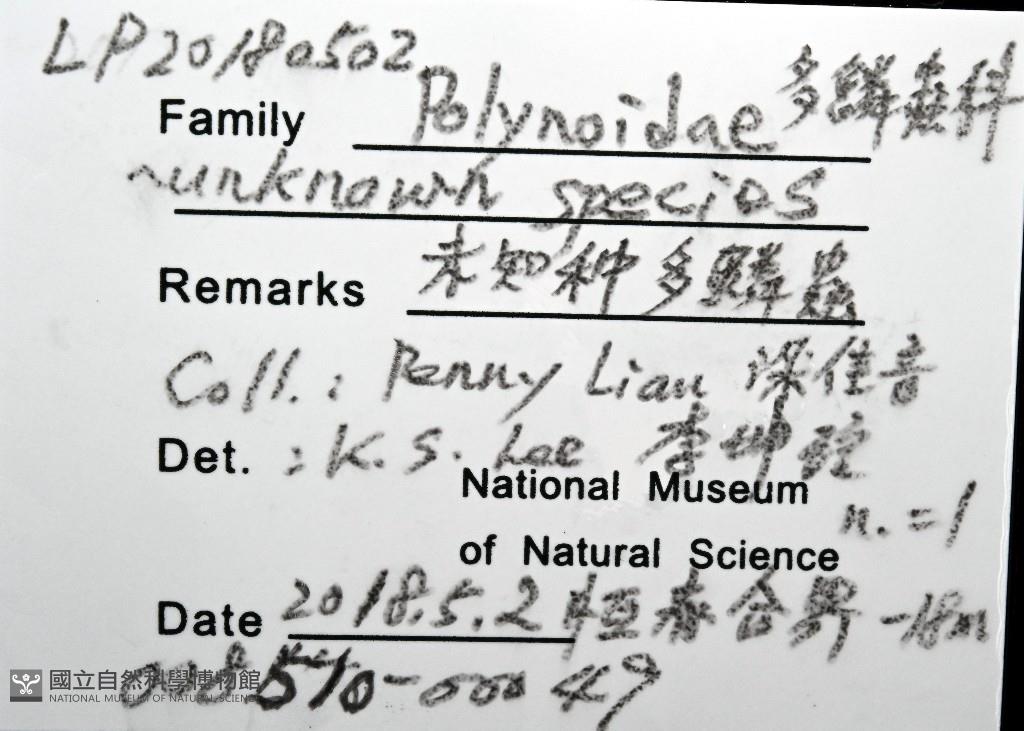 LP20180502
Family Polynoidae 多鱗蟲科
~unknown species
Remarks 未知种多鱗蟲
Coll.: Penny Liau 梁佳音
Det. : K. S. Lee 李坤瑄
National Museum
n. = 1
of Natural Science
Date 2018.5.2 恒春合界 -18m
510-00049
國立自然科學博物館
NATIONAL MUSEUM OF NATURAL SCIENCE